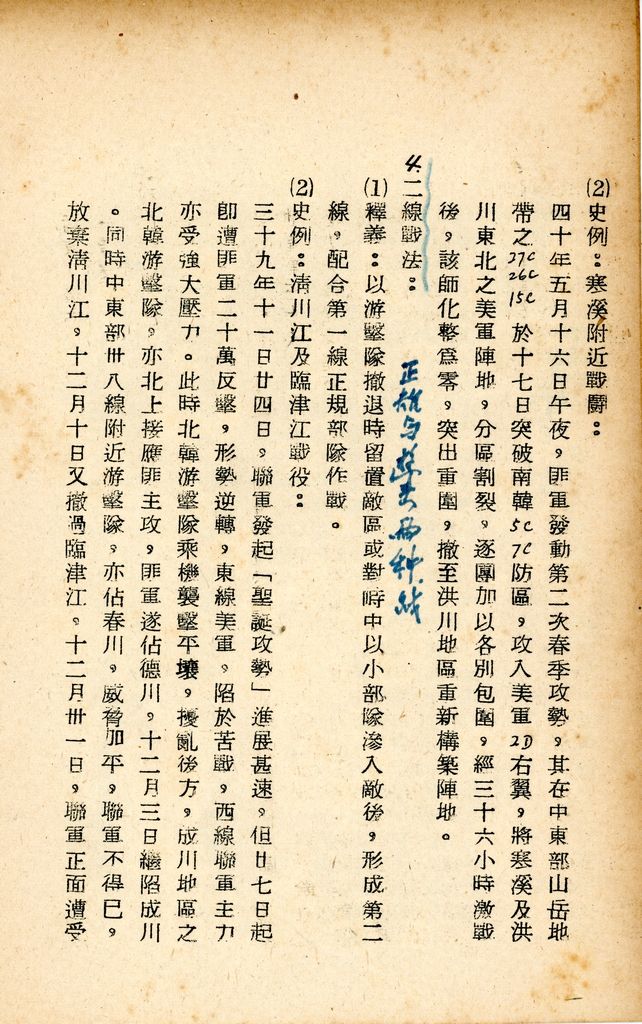 (2)史例：寒溪附近戰鬪：
四十年五月十六日午夜，匪軍發動第二次春季攻勢，其在中東部山岳地
帶之27C 26C 15C於十七日突破南韓5C 7C防區，攻入美軍2D右翼，將寒溪及洪
川東北之美軍陣地，分區割裂，逐團加以各別包圍，經三十六小時激戰
後，該師化整爲零，突出重圍，撤至洪川地區重新構築陣地。
4.二線戰法：
正規与游击两种战
(1)釋義：以游擊隊撤退時留置敵區或對峙中以小部隊滲入敵後，形成第二
線，配合第一線正規部隊作戰。
(2)史例：清川江及臨津江戰役：
三十九年十一日廿四日，聯軍發起「聖誕攻勢」進展甚速，但廿七日起
卽遭匪軍二十萬反擊，形勢逆轉，東線美軍，陷於苦戰，西線聯軍主力
亦受強大壓力。此時北韓游擊隊乘機襲擊平壤，擾亂後方，成川地區之
北韓游擊隊，亦北上接應匪主攻，匪軍遂佔德川，十二月三日繼陷成川
。同時中東部卅八線附近游擊隊，亦佔春川，威脅加平，聯軍不得已，
放棄清川江，十二月十日又撤過臨津江。十二月卅一日，聯軍正面遭受